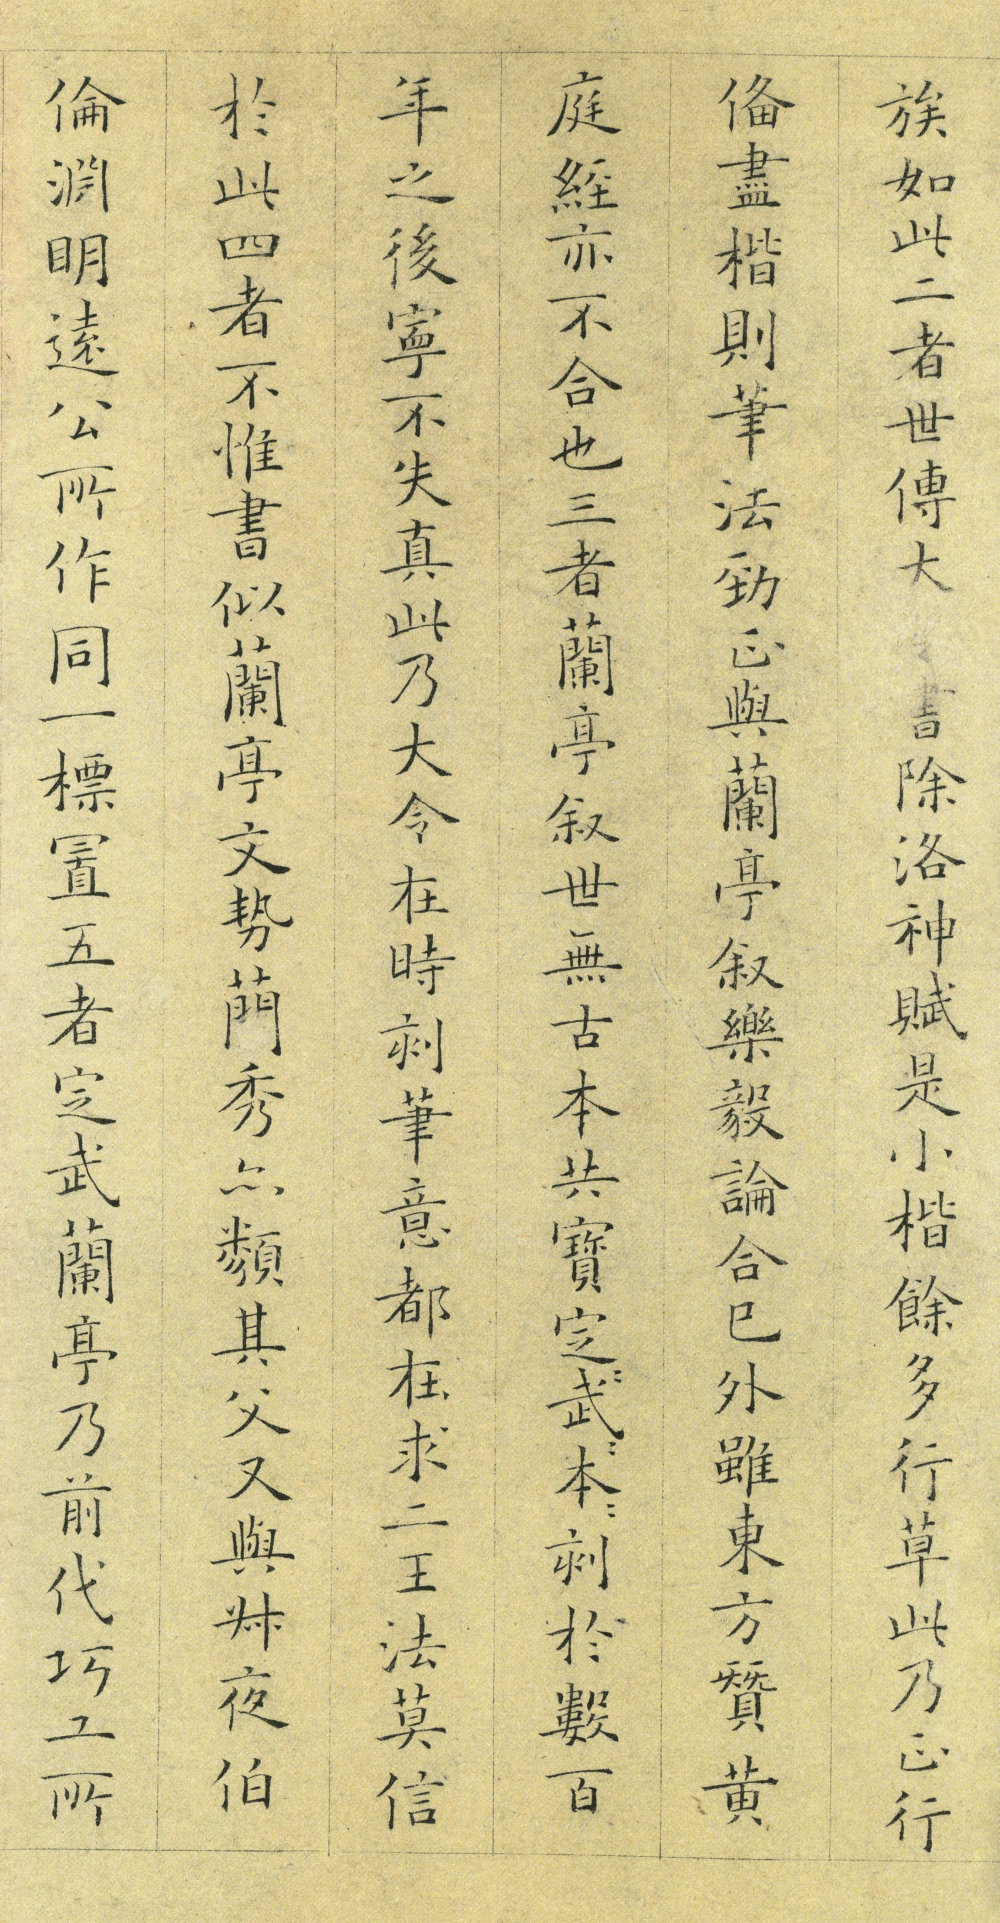 族如此二者世傳大令書除洛神賦是小楷餘多行草此乃正行
俻盡楷則筆法勁正與蘭亭叙樂毅論合已外雖東方贊黄
庭經亦不合也三者蘭亭叙世無古本共寶定武本刻於數百
年之後寧不失真此乃大令在時刻筆意都在求二王法莫信
於此四者不惟書似蘭亭文勢蕳秀亦類其父又與叔夜伯
倫淵明遠公所作同一標置五者定武蘭亭乃前代巧工所